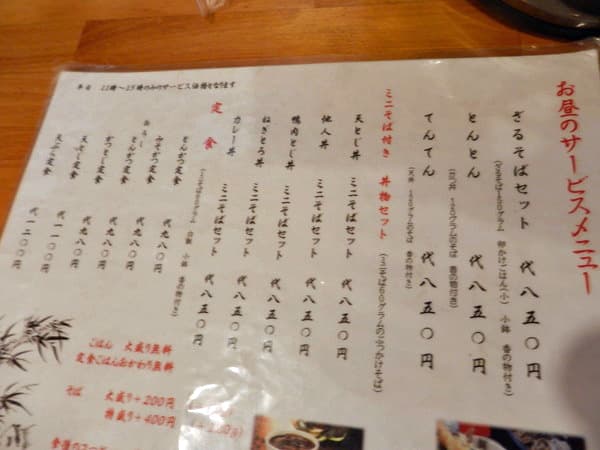 お昼のサービスメニュー
ざるそばセット 代八五〇円
(ざるそば150グラム 卵かけごはん(小) 小鉢 香の物付き)
とんとん 代八五〇円
(カツ丼 150グラムのそば 香の物付き)
てんてん 代八五〇円
(天丼 150グラムのそば 香の物付き)
ミニそば付き 丼物セット
(ミニそば60グラムのぶっかけそば)
天とじ丼 ミニそばセット 代八五〇円
他人丼 ミニそばセット 代八五〇円
鴨肉とじ丼 ミニそばセット 代八五〇円
ねぎとろ丼 ミニそばセット 代八五〇円
カレー丼 ミニそばセット 代八五〇円
定食
とんかつ定食 代九八〇円
みそかつ定食 代九八〇円
おろしとんかつ定食 代九八〇円
かつとじ定食 代九八〇円
天とじ定食 代一一〇〇円
天ぷら定食 代一二〇〇円
平日 11時〜15時のみのサービス価格となります
ごはん 大盛り無料
定食ごはんおかわり無料
そば 大盛り+200円
特盛り+400円